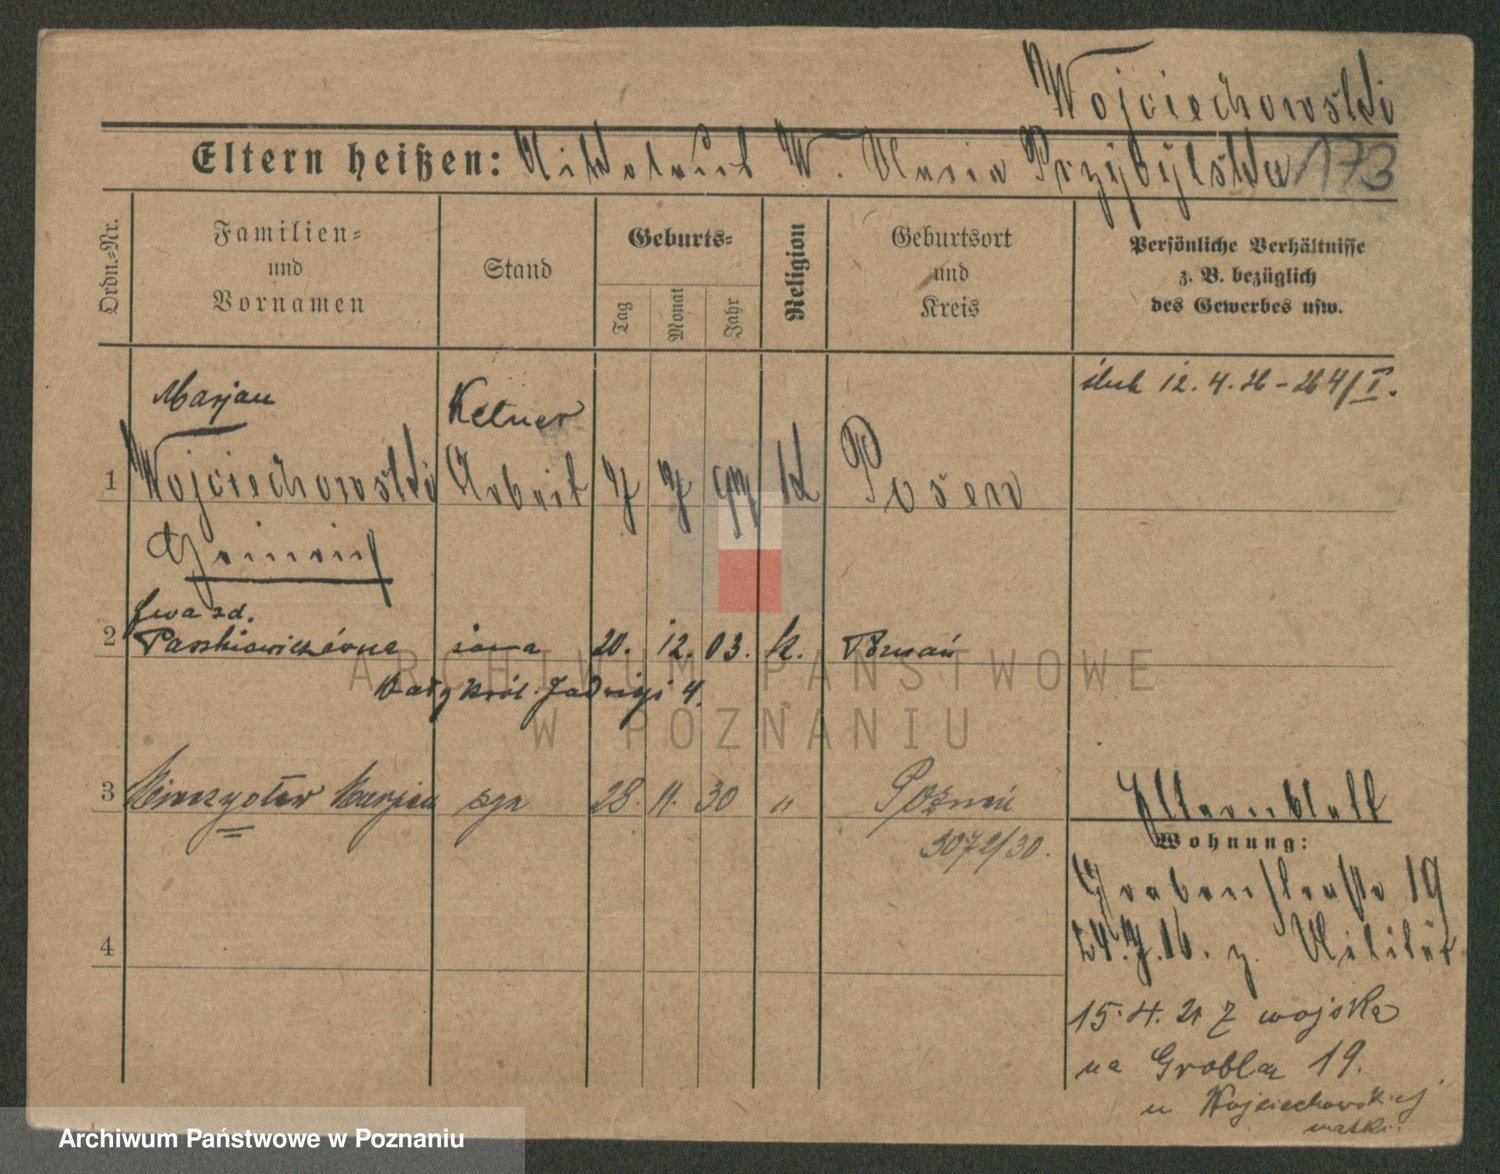 Wojciechowski
Eltern heißen: Nikolaus W. Maria Przybylska 173
Ordn.-Nr.
Familien- und Vornamen
Stand
Geburts-
Tag
Monat
Jahr
Religion
Geburtsort und Kreis
Persönliche Verhältnisse z. B. bezüglich des Gewerbes usw.
Marjan
Kelner
ślub 12. 4. 26 - 264/I.
1 Wojciechowski Arbeit 7 7 97 K Posen
Heinrich
Ewa zd.
2 Paszkiewiczówna żona 20. 12. 03. k. Poznań
Wały Król. Jadwigi 4.
3 Mieczysław Marjan syn 28. 11. 30 " Poznań
3072/30.
Elternblatt
Wohnung:
Grabenstraße 19
24.7.16. z. Militär
4
15. 4. 21 z wojska
na Grobla 19.
u Wojciechowskiej
matki.
ARCHIWUM PAŃSTWOWE
W POZNANIU
Archiwum Państwowe w Poznaniu